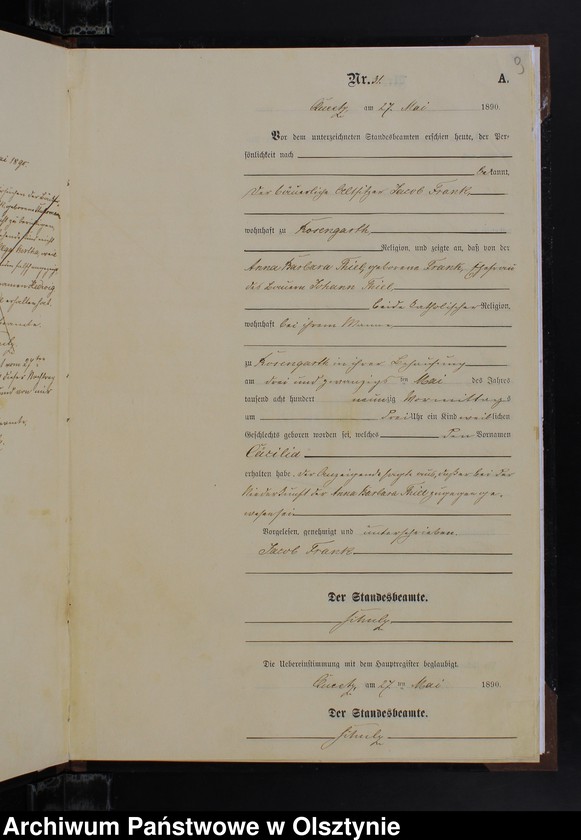 9
Nr. 31. A.
Queetz am 27 Mai 1890.
Vor dem unterzeichneten Standesbeamten erschien heute, der Per-
sönlichkeit nach
bekannt,
der bäuerliche Altsitzer Jacob Frank
wohnhaft zu Rosengarth
Religion, und zeigte an, daß von der
Anna Barbara Thiel, geborene Frank, Ehefrau
des Bauern Johann Thiel
beide katholischer Religion,
wohnhaft bei ihrem Manne
zu Rosengarth in ihrer Behausung
am drei und zwanzigsten Mai des Jahres
tausend acht hundert neunzig Vormittags
um drei Uhr ein Kind weiblichen
Geschlechts geboren worden sei, welches den Vornamen
Cäcilia
erhalten habe. Der Anzeigende sagte aus, daß er bei der
Niederkunft der Anna Barbara Thiel zugegen ge-
wesen sei
Vorgelesen, genehmigt und unterschrieben.
Jacob Frank
Der Standesbeamte.
Schulz
Die Uebereinstimmung mit dem Hauptregister beglaubigt.
Queetz, am 27ten Mai 1890.
Der Standesbeamte.
Schulz
Archiwum Państwowe w Olsztynie